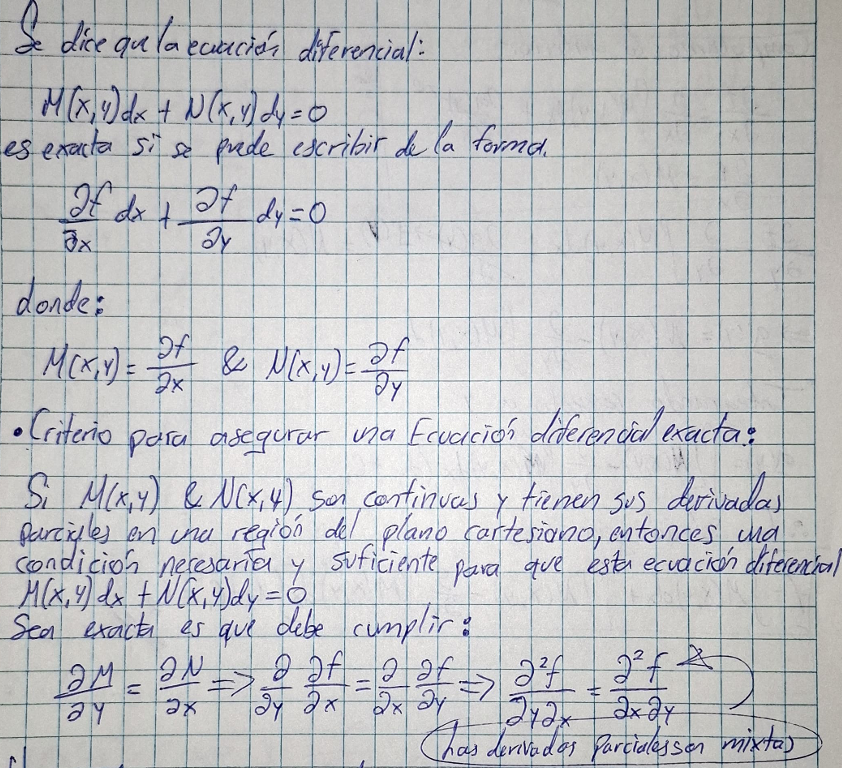 Se dice que la ecuación diferencial:
M(x,y)dx + N(x,y)dy=0
es exacta si se puede escribir de la forma.
∂f/∂x dx + ∂f/∂y dy=0
donde:
M(x,y)= ∂f/∂x & N(x,y)= ∂f/∂y
• Criterio para asegurar una Ecuación diferencial exacta:
Si M(x,y) & N(x,y) son continuas y tienen sus derivadas
parciales en una región del plano cartesiano, entonces una
condición necesaria y suficiente para que esta ecuación diferencial
M(x,y)dx + N(x,y)dy=0
Sea exacta es que debe cumplir:
∂M/∂y = ∂N/∂x => ∂/∂y ∂f/∂x = ∂/∂x ∂f/∂y => ∂²f/∂y∂x = ∂²f/∂x∂y
las derivadas parciales son mixtas